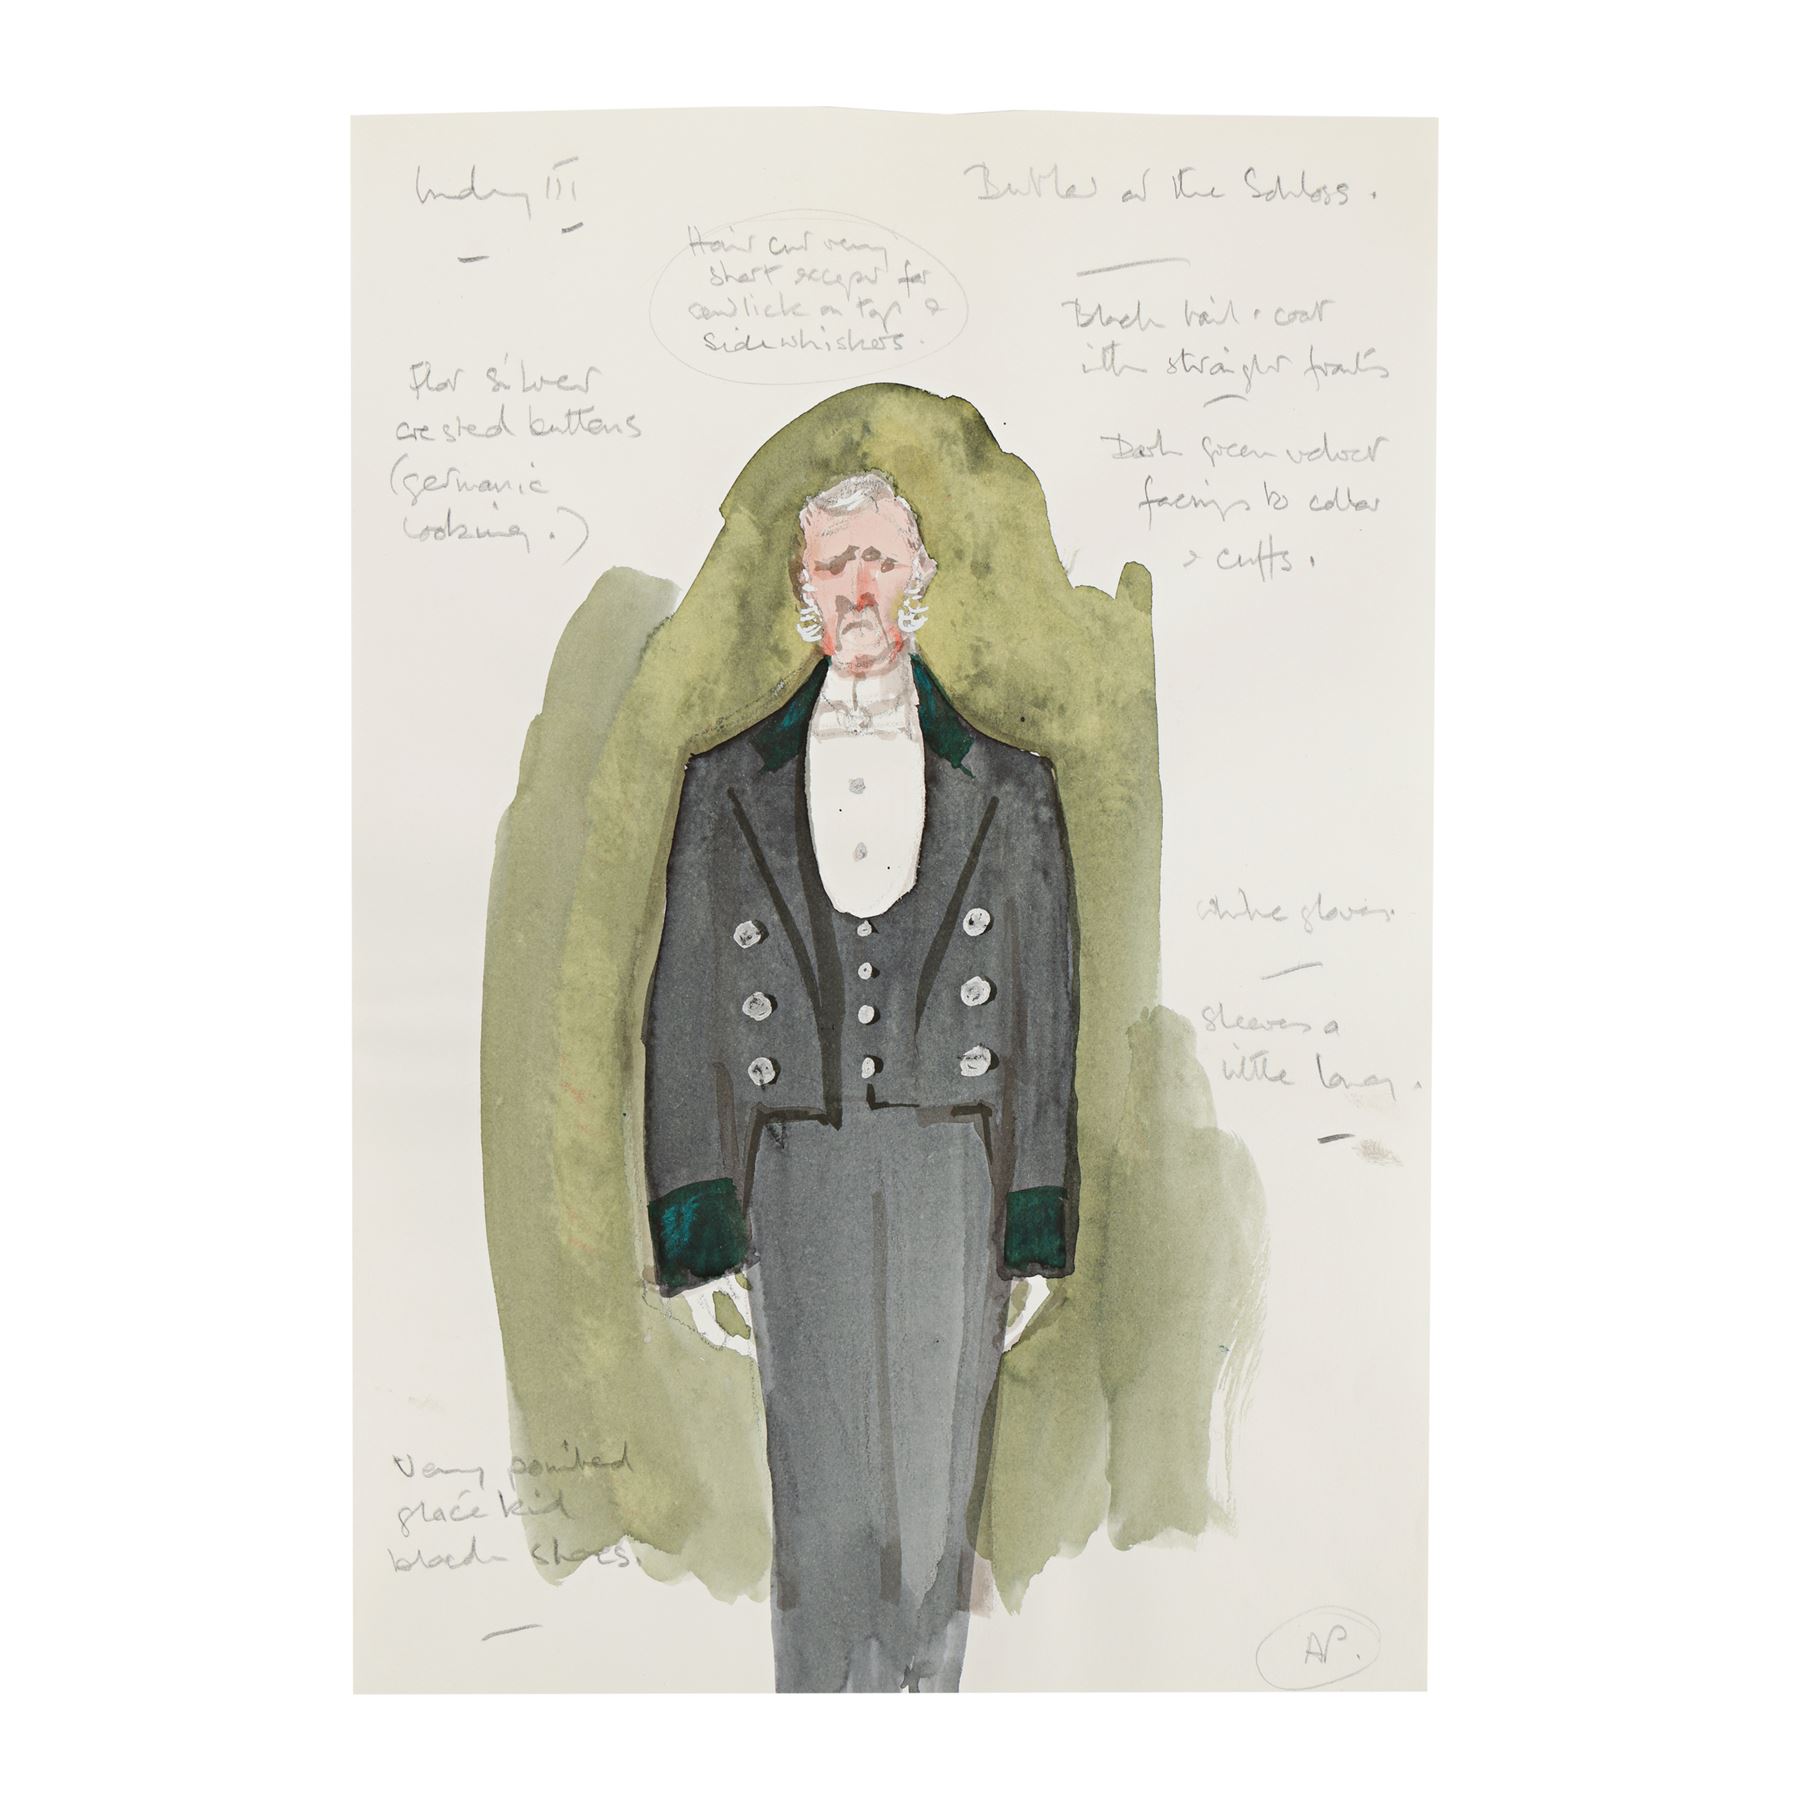 III
Butler at the Schloss.
Hair cut very
short except for
cowlick on top &
sidewhiskers.
Flat silver
crested buttons
(germanic
looking.)
Black tail-coat
with straight fronts
Dark green velvet
facings to collar
& cuffs.
white gloves.
sleeves a
little long.
Very pointed
glacé kid
black shoes.
AP.